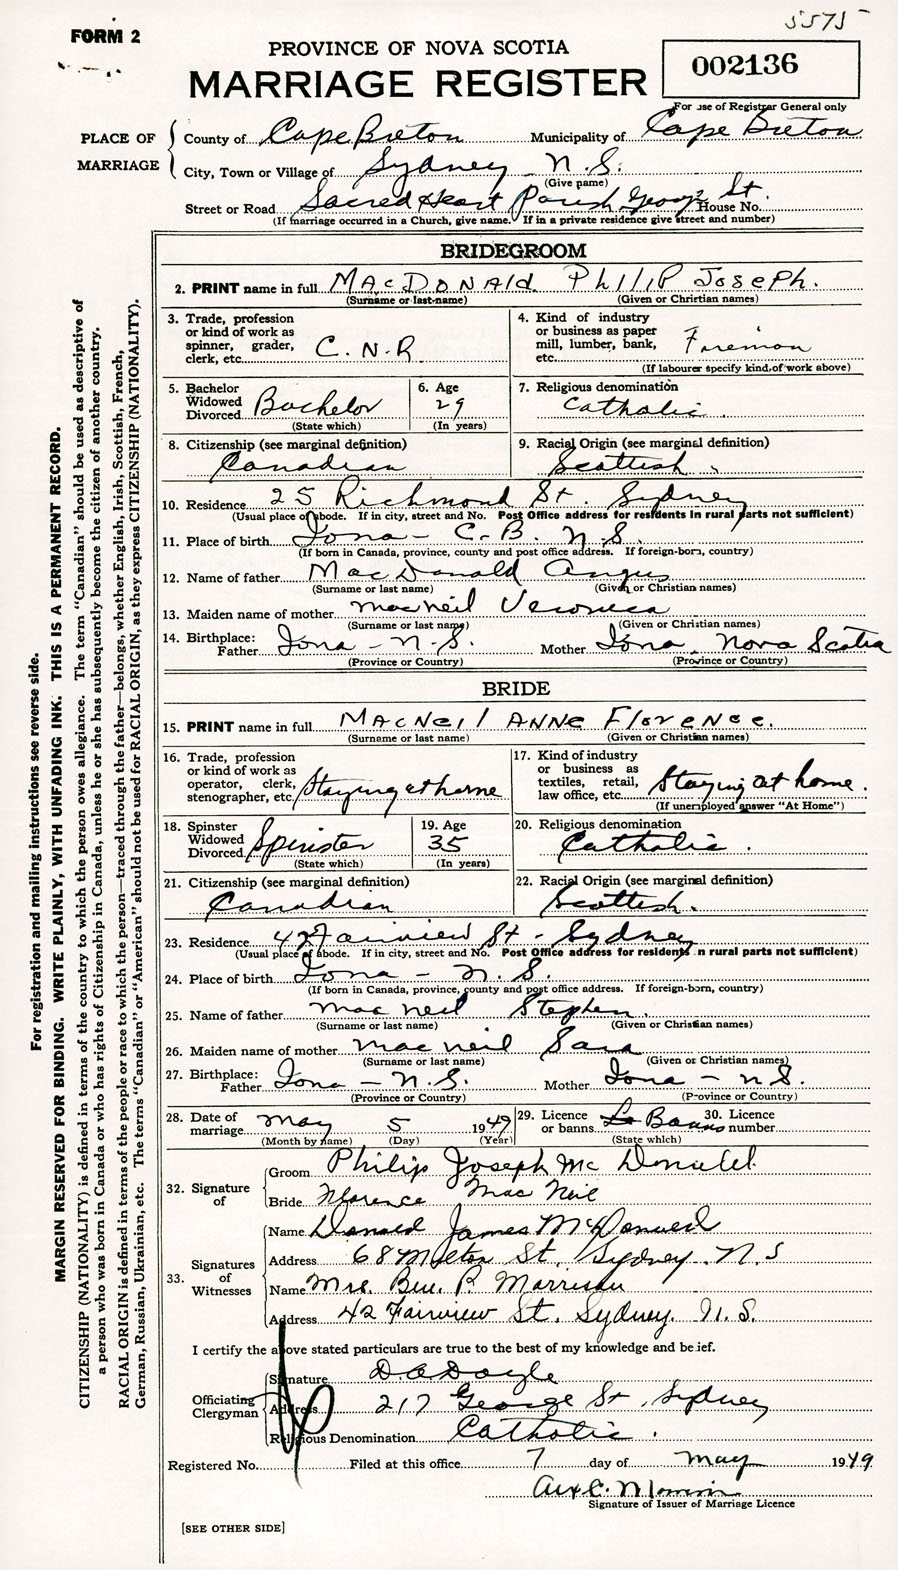 5575
FORM 2
PROVINCE OF NOVA SCOTIA
MARRIAGE REGISTER
002136
For use of Registrar General only
PLACE OF MARRIAGE
County of Cape Breton Municipality of Cape Breton
City, Town or Village of Sydney N.S.
(Give name)
Street or Road Sacred Heart Parish George St. House No.
(If marriage occurred in a Church, give name. If in a private residence give street and number)
BRIDEGROOM
2. PRINT name in full MacDonald Philip Joseph.
(Surname or last-name) (Given or Christian names)
3. Trade, profession or kind of work as spinner, grader, clerk, etc. C.N.R.
4. Kind of industry or business as paper mill, lumber, bank, etc. Foreman
(If labourer specify kind of work above)
5. Bachelor Widowed Divorced Bachelor
(State which)
6. Age 29
(In years)
7. Religious denomination Catholic.
8. Citizenship (see marginal definition) Canadian
9. Racial Origin (see marginal definition) Scottish.
10. Residence 25 Richmond St. Sydney
(Usual place of abode. If in city, street and No. Post Office address for residents in rural parts not sufficient)
11. Place of birth Iona - C.B. N.S.
(If born in Canada, province, county and post office address. If foreign-born, country)
12. Name of father MacDonald Angus
(Surname or last name) (Given or Christian names)
13. Maiden name of mother MacNeil Veronica
(Surname or last name) (Given or Christian names)
14. Birthplace: Father Iona - N.S. Mother Iona. Nova Scotia
(Province or Country) (Province or Country)
BRIDE
15. PRINT name in full MacNeil Anne Florence.
(Surname or last name) (Given or Christian names)
16. Trade, profession or kind of work as operator, clerk, stenographer, etc. Staying at home
17. Kind of industry or business as textiles, retail, law office, etc. Staying at home.
(If unemployed answer "At Home")
18. Spinster Widowed Divorced Spinster
(State which)
19. Age 35
(In years)
20. Religious denomination Catholic.
21. Citizenship (see marginal definition) Canadian
22. Racial Origin (see marginal definition) Scottish.
23. Residence 42 Fairview St - Sydney
(Usual place of abode. If in city, street and No. Post Office address for residents in rural parts not sufficient)
24. Place of birth Iona - N.S.
(If born in Canada, province, county and post office address. If foreign-born, country)
25. Name of father MacNeil Stephen.
(Surname or last name) (Given or Christian names)
26. Maiden name of mother MacNeil Sara
(Surname or last name) (Given or Christian names)
27. Birthplace: Father Iona - N.S. Mother Iona - N.S.
(Province or Country) (Province or Country)
28. Date of marriage May 5 1949
(Month by name) (Day) (Year)
29. Licence or banns Banns
(State which)
30. Licence number
32. Signature of
Groom Philip Joseph McDonald
Bride Florence MacNeil
33. Signatures of Witnesses
Name Donald James
Address 68 Milton St. Sydney. N.S
Name Mrs. P. Morrison
Address 42 Fairview St. Sydney. N.S.
I certify the above stated particulars are true to the best of my knowledge and belief.
Officiating Clergyman
Signature D A Doyle
Address 217 George St, Sydney
Religious Denomination Catholic.
Registered No. Filed at this office 7 day of May 1949
Signature of Issuer of Marriage Licence
[SEE OTHER SIDE]
For registration and mailing instructions see reverse side.
MARGIN RESERVED FOR BINDING. WRITE PLAINLY, WITH UNFADING INK. THIS IS A PERMANENT RECORD.
CITIZENSHIP (NATIONALITY) is defined in terms of the country to which the person owes allegiance. The term "Canadian" should be used as descriptive of
a person who was born in Canada or who has rights of Citizenship in Canada, unless he or she has subsequently become the citizen of another country.
RACIAL ORIGIN is defined in terms of the people or race to which the person—traced through the father—belongs, whether English, Irish, Scottish, French,
German, Russian, Ukrainian, etc. The terms "Canadian" or "American" should not be used for RACIAL ORIGIN, as they express CITIZENSHIP (NATIONALITY).